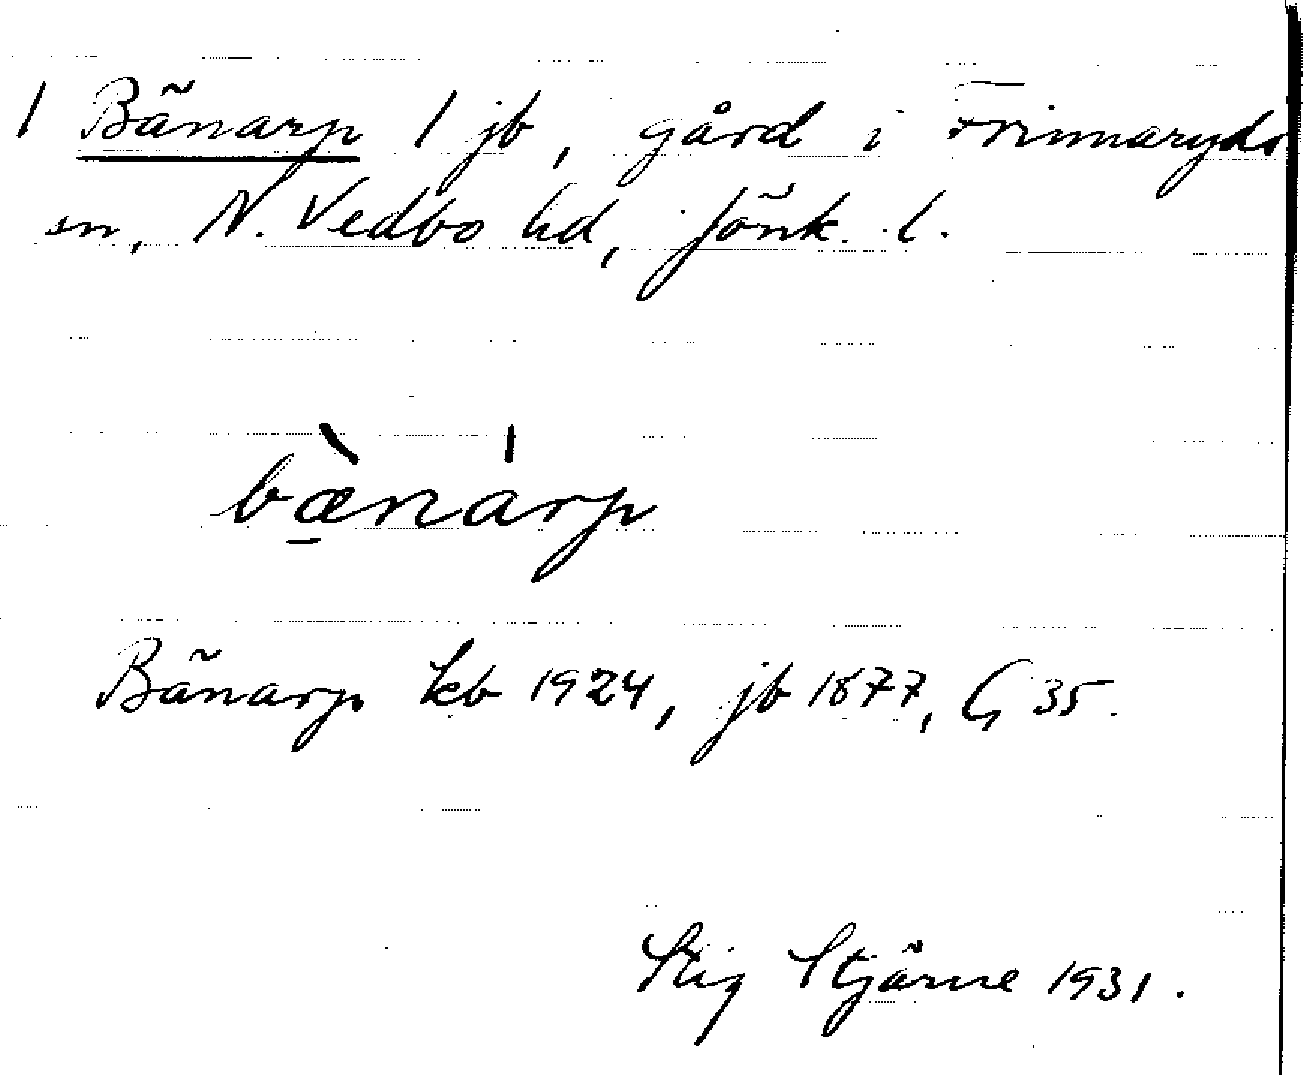 1 Bänarp 1 jb, gård i Frinnaryds
sn, N. Vedbo hd, Jönk. l.
bæ̠̀nárp
Bänarp kb 1924, jb 1877, G 35.
Stig Stjärne 1931.